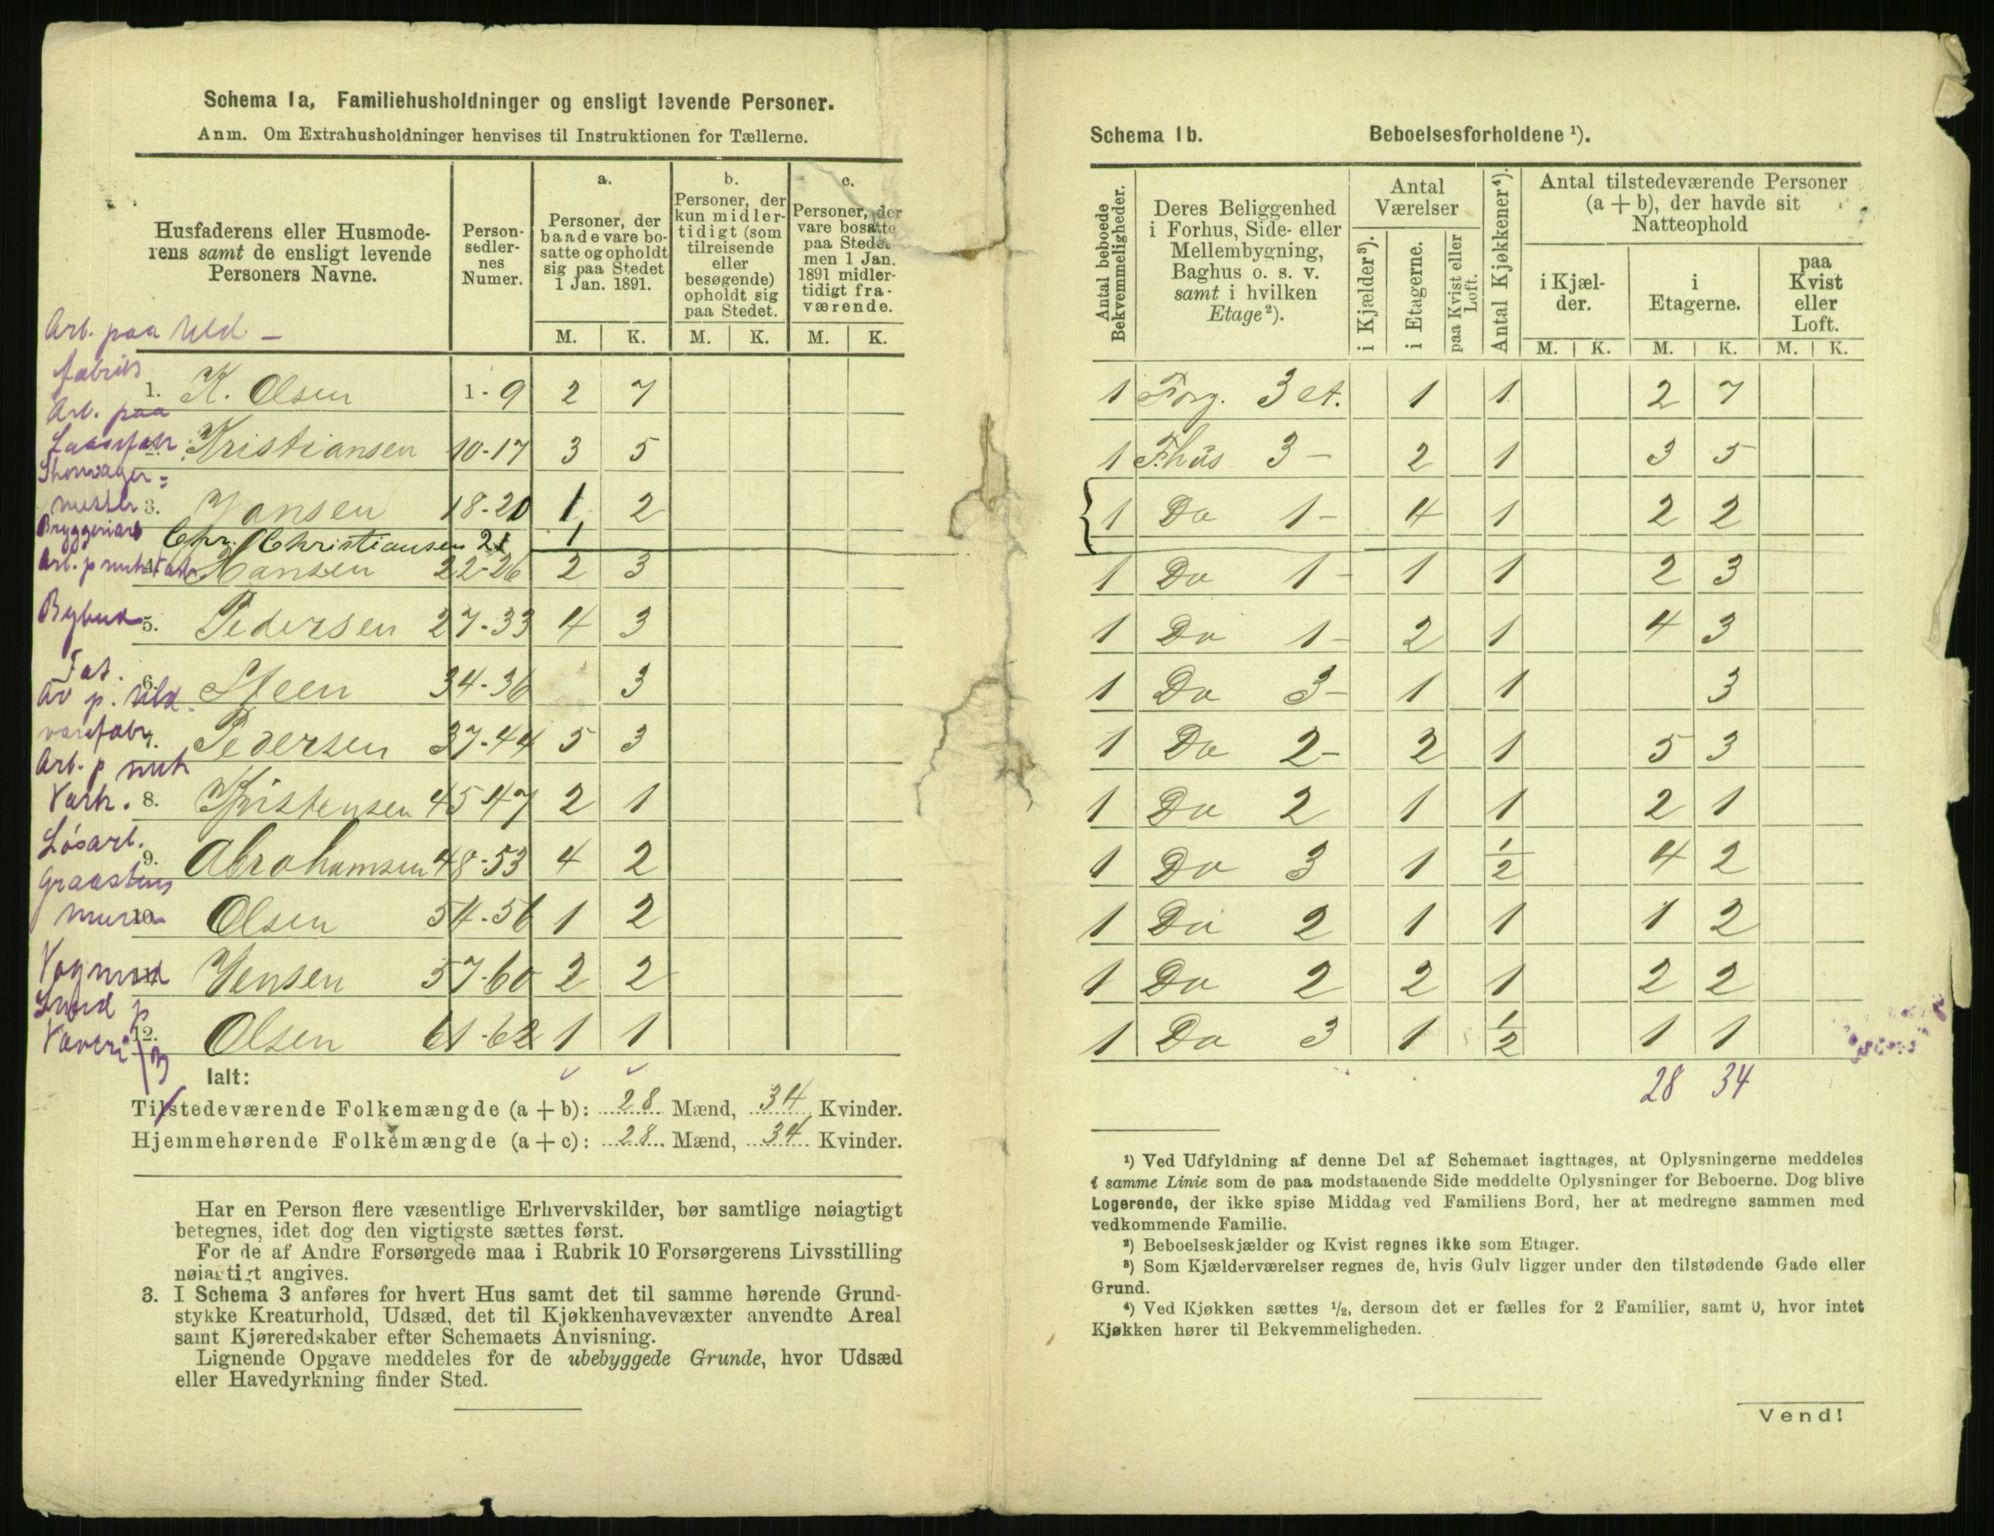 Schema 1a, Familiehusholdninger og ensligt levende Personer.
Anm. Om Extrahusholdninger henvises til Instruktionen for Tællerne.
Husfaderens eller Husmode-
rens samt de ensligt levende
Personers Navne.
Person-
sedler-
nes
Numer.
a.
Personer, der
baade vare bo-
satte og opholdt
sig paa Stedet
1 Jan. 1891.
b.
Personer, der
kun midler-
tidigt (som
tilreisende
eller
besøgende)
opholdt sig
paa Stedet.
c.
Personer, der
vare bosatte
paa Stedet
men 1 Jan.
1891 midler-
tidigt fra-
værende.
M. K. M. K. M. K.
Arb. paa Uld-
fabrik
1. K. Olsen 1-9 2 7
Arb. paa
Kristiansen 10-17 3 5
3. Jansen 18-20 1 2
Bryggeriarb Chr. Christiansen 21 1
4. Hansen 22-26 2 3
Bybud 5. Pedersen 27-33 4 3
6. Steen 34-36 3
7. Pedersen 37-44 5 3
Arb. p
8. Kristensen 45-47 2 1
Løsarb.
9. Abrahamsen 48-53 4 2
10. Olsen 54-56 1 2
Jensen 57-60 2 2
12. Olsen 61-62 1 1
Væveri
13
Ialt:
Tilstedeværende Folkemængde (a + b): 28 Mænd, 34 Kvinder.
Hjemmehørende Folkemængde (a + c): 28 Mænd, 34 Kvinder.
Har en Person flere væsentlige Erhvervskilder, bør samtlige nøiagtigt
betegnes, idet dog den vigtigste sættes først.
For de af Andre Forsørgede maa i Rubrik 10 Forsørgerens Livsstilling
nøiagtigt angives.
3. I Schema 3 anføres for hvert Hus samt det til samme hørende Grund-
stykke Kreaturhold, Udsæd, det til Kjøkkenhavevæxter anvendte Areal
samt Kjøreredskaber efter Schemaets Anvisning.
Lignende Opgave meddeles for de ubebyggede Grunde, hvor Udsæd
eller Havedyrkning finder Sted.
Schema 1b. Beboelsesforholdene ¹).
Antal beboede
Bekvemmeligheder.
Deres Beliggenhed
i Forhus, Side- eller
Mellembygning,
Baghus o. s. v.
samt i hvilken
Etage²).
Antal
Værelser
i Kjælder³).
i Etagerne.
paa Kvist eller
Loft.
Antal Kjøkkener⁴).
Antal tilstedeværende Personer
(a + b), der havde sit
Natteophold
i Kjæl-
der.
i
Etagerne.
paa
Kvist
eller
Loft.
M. K. M. K. M. K.
1 Forg. 3 et. 1 1 2 7
1 F.hus 3 - 2 1 3 5
1 Do 1 - 4 1 2 2
1 Do 1 - 1 1 2 3
1 Do 1 - 2 1 4 3
1 Do 3 - 1 1 3
1 Do 2 - 2 1 5 3
1 Do 2 1 1 2 1
1 Do 3 1 1/2 4 2
1 Do 2 1 1 1 2
1 Do 2 2 1 2 2
1 Do 3 1 1/2 1 1
28 34
¹) Ved Udfyldning af denne Del af Schemaet iagttages, at Oplysningerne meddeles
i samme Linie som de paa modstaaende Side meddelte Oplysninger for Beboerne. Dog blive
Logerende, der ikke spise Middag ved Familiens Bord, her at medregne sammen med
vedkommende Familie.
²) Beboelseskjælder og Kvist regnes ikke som Etager.
³) Som Kjælderværelser regnes de, hvis Gulv ligger under den tilstødende Gade eller
Grund.
⁴) Ved Kjøkken sættes ½, dersom det er fælles for 2 Familier, samt 0, hvor intet
Kjøkken hører til Bekvemmeligheden.
Vend!